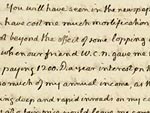 You will have seen in the newspap
have cost me much mortification
not beyond the effect of some lopping o
when our friend W.C.N. gave me
paying 1200. Dar interest pr
as much of my annual income, as th
ing deep and rapid inroads on my ca
would leave me com